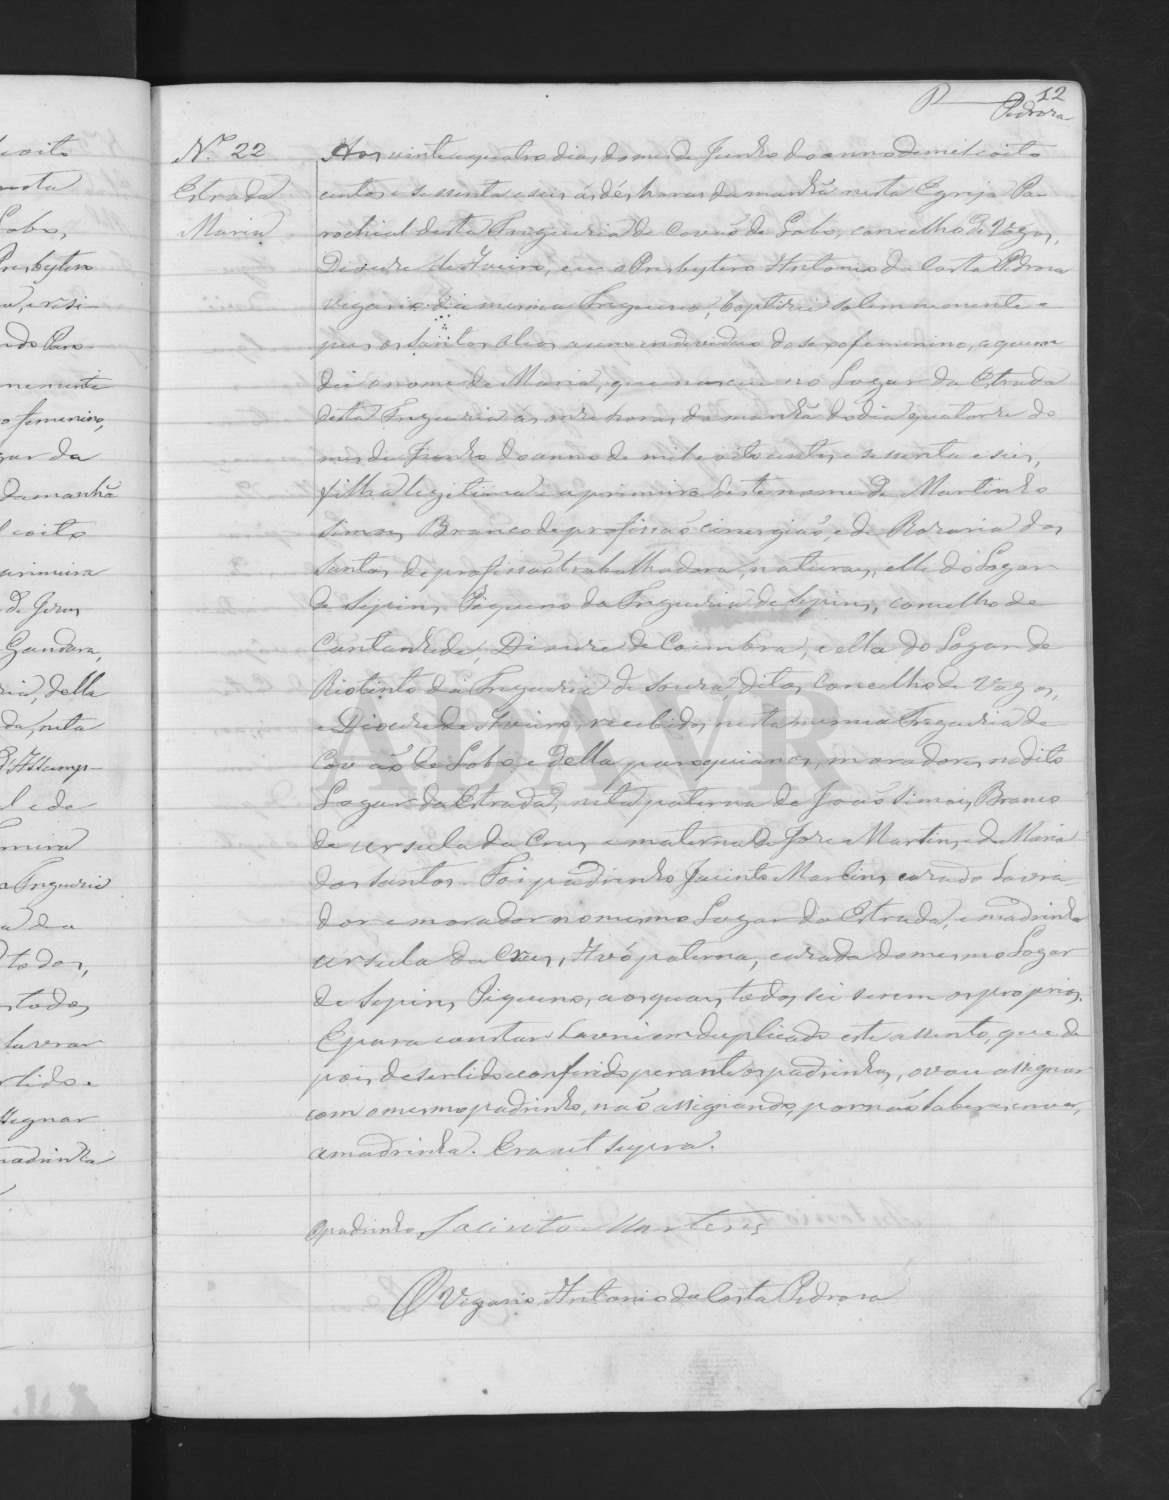 12
Pedrosa
Nº 22
Estrada
Maria
Aos vinte e quatro dias do mes de Junho do anno de mil e oito
centos e sessenta e seis ás dés horas da manhã nesta Egreja Pa
rochial desta Freguezia de Covão do Lobo, concelho de Vagos,
Diocese de Aveiro, eu o Presbytero Antonio da Costa Pedrosa
vigario da mesma Freguesia, baptizei solemnemente e
pus os santos oleos a um individuo do sexo femenino, a quem
dei o nome de Maria, que nasceu no Logar da Estrada
desta Freguezia ás onze horas da manhã do dia quatorze do
mes de Junho do anno de mil e oitocentos e sessenta e seis,
filha legitima e a primeira deste nome de Martinho
Simoes Branco de profissaõ cirurgiaõ e de Rozaria dos
Santos de profissaõ trabalhadora, naturaes, elle do Logar
de Sepins Piqueno da Freguezia de Sepins, comcelho de
Cantanhede, Diocese de Coimbra, e ella do Logar de
Riotinto da Freguezia de Souza, ditos Concelho de Vagos,
e Diocese de Aveiro, recebidos nesta mesma Freguezia de
Covaõ do Lobo, e della paroquianos, moradores no dito
Logar da Estrada, neta paterna de Joaõ Simois Branco
de Ursula da Crus, e materna de Joze Martins, e de Maria
dos Santos. Foi padrinho Jacinto Martins, cazado Lavra
dor e morador no mesmo Logar da Estrada, e madrinha
Ursula da Crus, Avó paterna, cazada do mesmo Logar
de Sepins Piqueno, aos quaes todos sei serem os proprios.
E para constar Lavrei em duplicado este assento, que de
pois de ser lido e conferido perante os padrinhos, o vou assignar
com o mesmo padrinho, naõ assignando, por naõ saber escrever,
a madrinha. Era ut supra.
O padrinho, Jacinto Martins
O Vigario Antonio da Costa Pedrosa
ADAVR